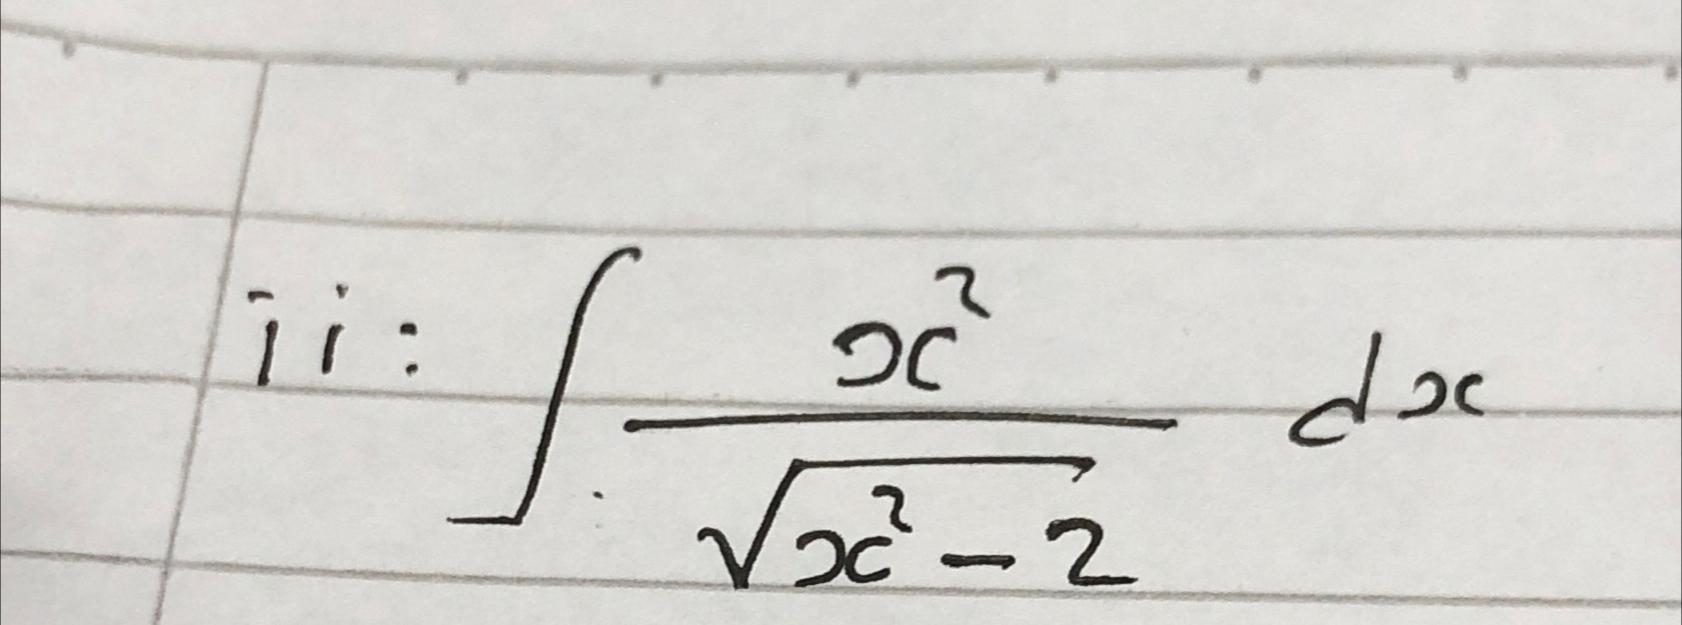 ii: ∫ x² / √(x² - 2) dx